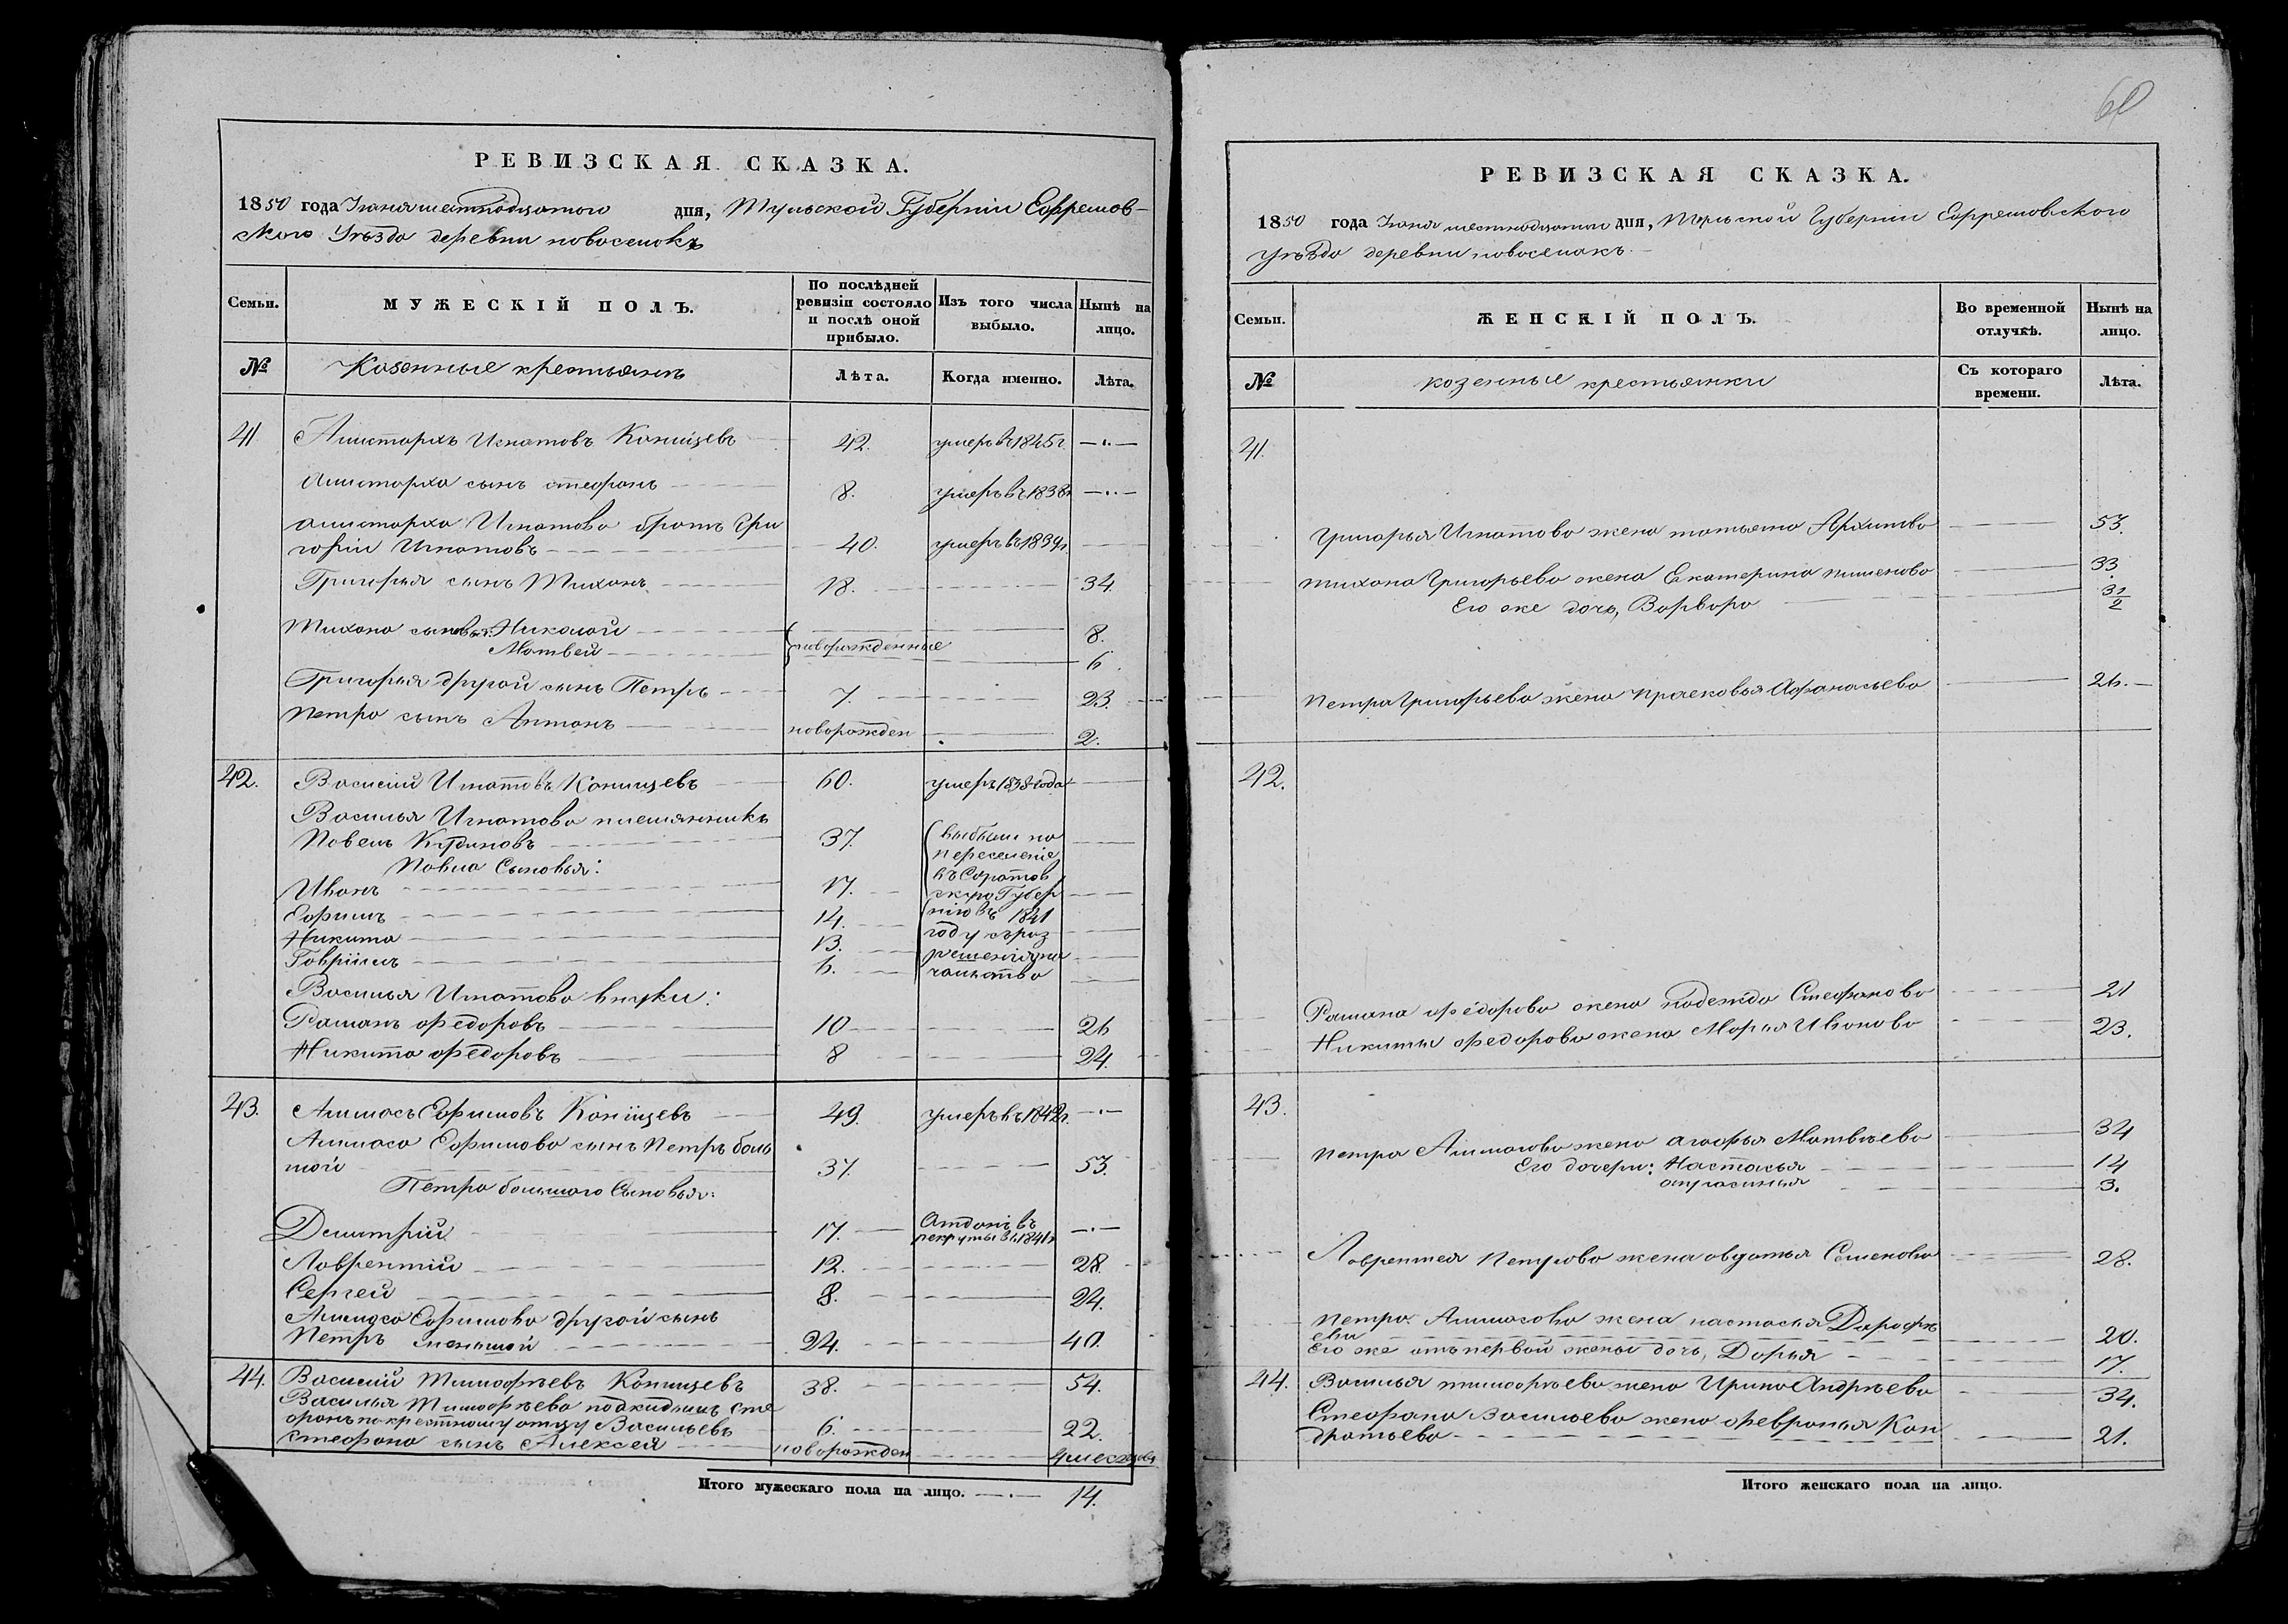 РЕВИЗСКАЯ СКАЗКА.
1850 года Іюня шестнадцатаго дня, Тульской Губерніи Ефремов-
скаго Уѣзда деревни новоселокъ
Семьи.
МУЖЕСКІЙ ПОЛЪ.
По послѣдней ревизіи состояло и послѣ оной прибыло.
Изъ того числа выбыло.
Нынѣ на лицо.
№
Казенные крестьянъ
Лѣта.
Когда именно.
Лѣта.
41 Аристархъ Игнатовъ Конищевъ 42. умеръ въ 1845г —·—
Аристарха сынъ стефанъ 8. умеръ въ 1838г —·—
аристарха Игнатова братъ Гри
горій Игнатовъ 40. умеръ въ 1839г.
Григорья сынъ Тихонъ 18. 34.
Тихона сыновья: Николай 8.
новорожденные
Матвей 6.
Григорья другой сынъ Петръ 7. 23.
Петра сынъ Антонъ новорожден 2.
42. Василий Игнатовъ Конищевъ 60. умеръ 1838 года
Василья Игнатова племянникъ
Павелъ Кудиновъ 37. выбыли на
переселеніе
Павла Сыновья:
въ Саратов
Иванъ 17. скую Губер
Ефимъ 14. нію въ 1841
Никита 13. году съ раз
Гаврiилъ 6. решенiя на
чальства
Василья Игнатова внуки:
Раманъ федоровъ 10 26
Никита федоровъ 8 24.
43. Ефимовъ Конищевъ 49. умеръ въ 1842г. —·—
Ефимова сынъ Петръ боль
шой 37. 53.
Петра большаго Сыновья:
Дмитрій 17. Атданъ въ
рекруты въ 1841г —·—
Лаврентій 12. 28.
Сергей 8. 24.
Ефимова другой сынъ
Петръ меньшой 24. 40.
44. Василий Тимофѣевъ Конищевъ 38. 54.
Василья Тимофѣева подкидышъ Сте
фанъ по крестному отцу Васильевъ 6. 22.
Стефана сынъ Алексей новорожден 4 месяцовъ
Итого мужескаго пола на лицо. —·— 14.
60
РЕВИЗСКАЯ СКАЗКА.
1850 года Іюня шестнадцатаго дня, Тульской Губерніи Ефремовского
уѣзда деревни новоселокъ.
Семьи.
ЖЕНСКІЙ ПОЛЪ.
Во временной отлучкѣ.
Нынѣ на лицо.
№
казенные крестьянки
Съ котораго времени.
Лѣта.
41.
Григорья Игнатова жена татьяна Архипова 53.
тихона Григорьева жена Екатерина пименова 33
Его же дочь, Варвара 3 1/2
Петра Григорьева жена прасковья Афанасьева 26.
42.
Рамана федорова жена надежда Стефанова 21
Никиты федорова жена Марья Иванова 23.
43.
Петра жена агафья Матвѣева 34
Его дочери: Настасья 14
3.
Лаврентея Петрова жена авдотья Семенова 28.
Петра жена настасья Дарофѣ
ева 20.
Его же отъ первой жены дочь, Дарья 17.
44. Василья тимофѣева жена Ирина Андрѣева 34.
Стефана Васильева жена февронья Кон
дратьева 21.
Итого женскаго пола на лицо.